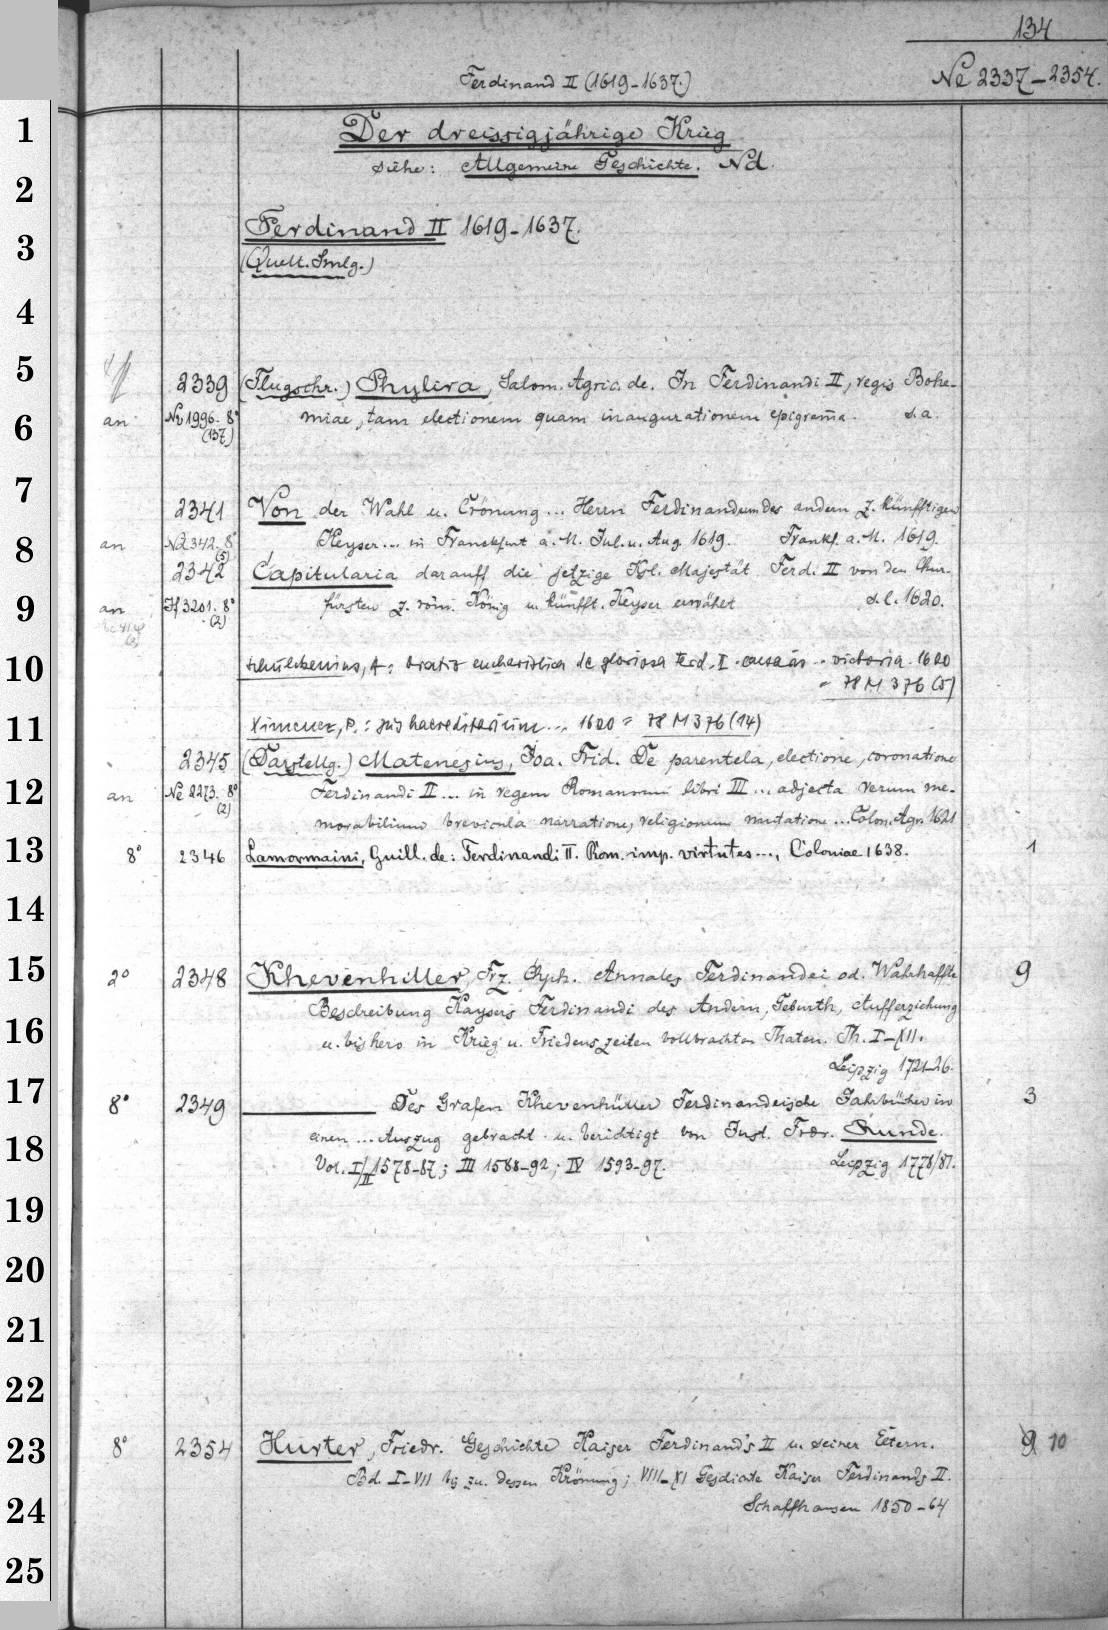 134
Ferdinand II (1619-1637.)
Ne 2337-2354.
Der dreissigjährige Krieg
siehe: Allgemeine Geschichte. Nd.
Ferdinand II 1619-1637.
(Quell. Smlg.)
2339 (Flugschr.) Phylira, Salom. Agric. de. In Ferdinandi II, regis Bohe-
an Nv 1996. 8° miae, tam electionem quam inaugurationem epigram̅a. s.a.
(137)
2341 Von der Wahl u. Crönung... Herrn Ferdinandum des andern z. künfftigen
an Nd 342. 8° Keyser... in Franckfurt a. M. Jul. u. Aug. 1619. Frankf. a. M. 1619.
(5)
2342 Capitularia darauff die jetzige Kgl. Majestät Ferd. II von den Chur-
an Jf 3201. 8° fürsten z. röm. König u. künfft. Keyser erwählet s.l. 1620.
(2)
Schulckenius, A: Oratio eucharistica de gloriosa Ferd. I. caesaris... victoria. 1620
= 78 M 376 (5)
Ximenez, P.: jus haereditarium... 1620 = 78 M 376 (14)
2345 (Darstellg.) Matenesius, Joa. Frid. De parentela, electione, coronatione
an Ne 2273. 8° Ferdinandi II... in regem Romanorum libri III... adjecta rerum me-
(2)
morabilium brevicula narratione, religionum mutatione... Colon. Agr. 1621
8° 2346 Lamormaini, Guill. de: Ferdinandi II. Rom. imp. virtutes..., Coloniae 1638. 1
2° 2348 Khevenhiller, Frz. Chph. Annales Ferdinandei od. Wahrhaffte 9
Beschreibung Kaysers Ferdinandi des Andern, Geburth, Aufferziehung
u. bishero in Krieg u. Friedenszeiten vollbrachten Thaten. Th. I-XII.
Leipzig 1721-26.
8° 2349 Des Grafen Khevenhüller Ferdinandeische Jahrbücher in 3
einen... Auszug gebracht u. berichtigt von Just. Frdr. Runde.
Vol. I/II 1578-87; III 1588-92; IV 1593-97. Leipzig 1778/81.
8° 2354 Hurter, Friedr. Geschichte Kaiser Ferdinand's II u. seiner Eltern. 9 10
Bd. I-VII bis zu dessen Krönung; VIII-XI Geschichte Kaiser Ferdinands II.
Schaffhausen 1850-64
1
2
3
4
5
6
7
8
9
10
11
12
13
14
15
16
17
18
19
20
21
22
23
24
25